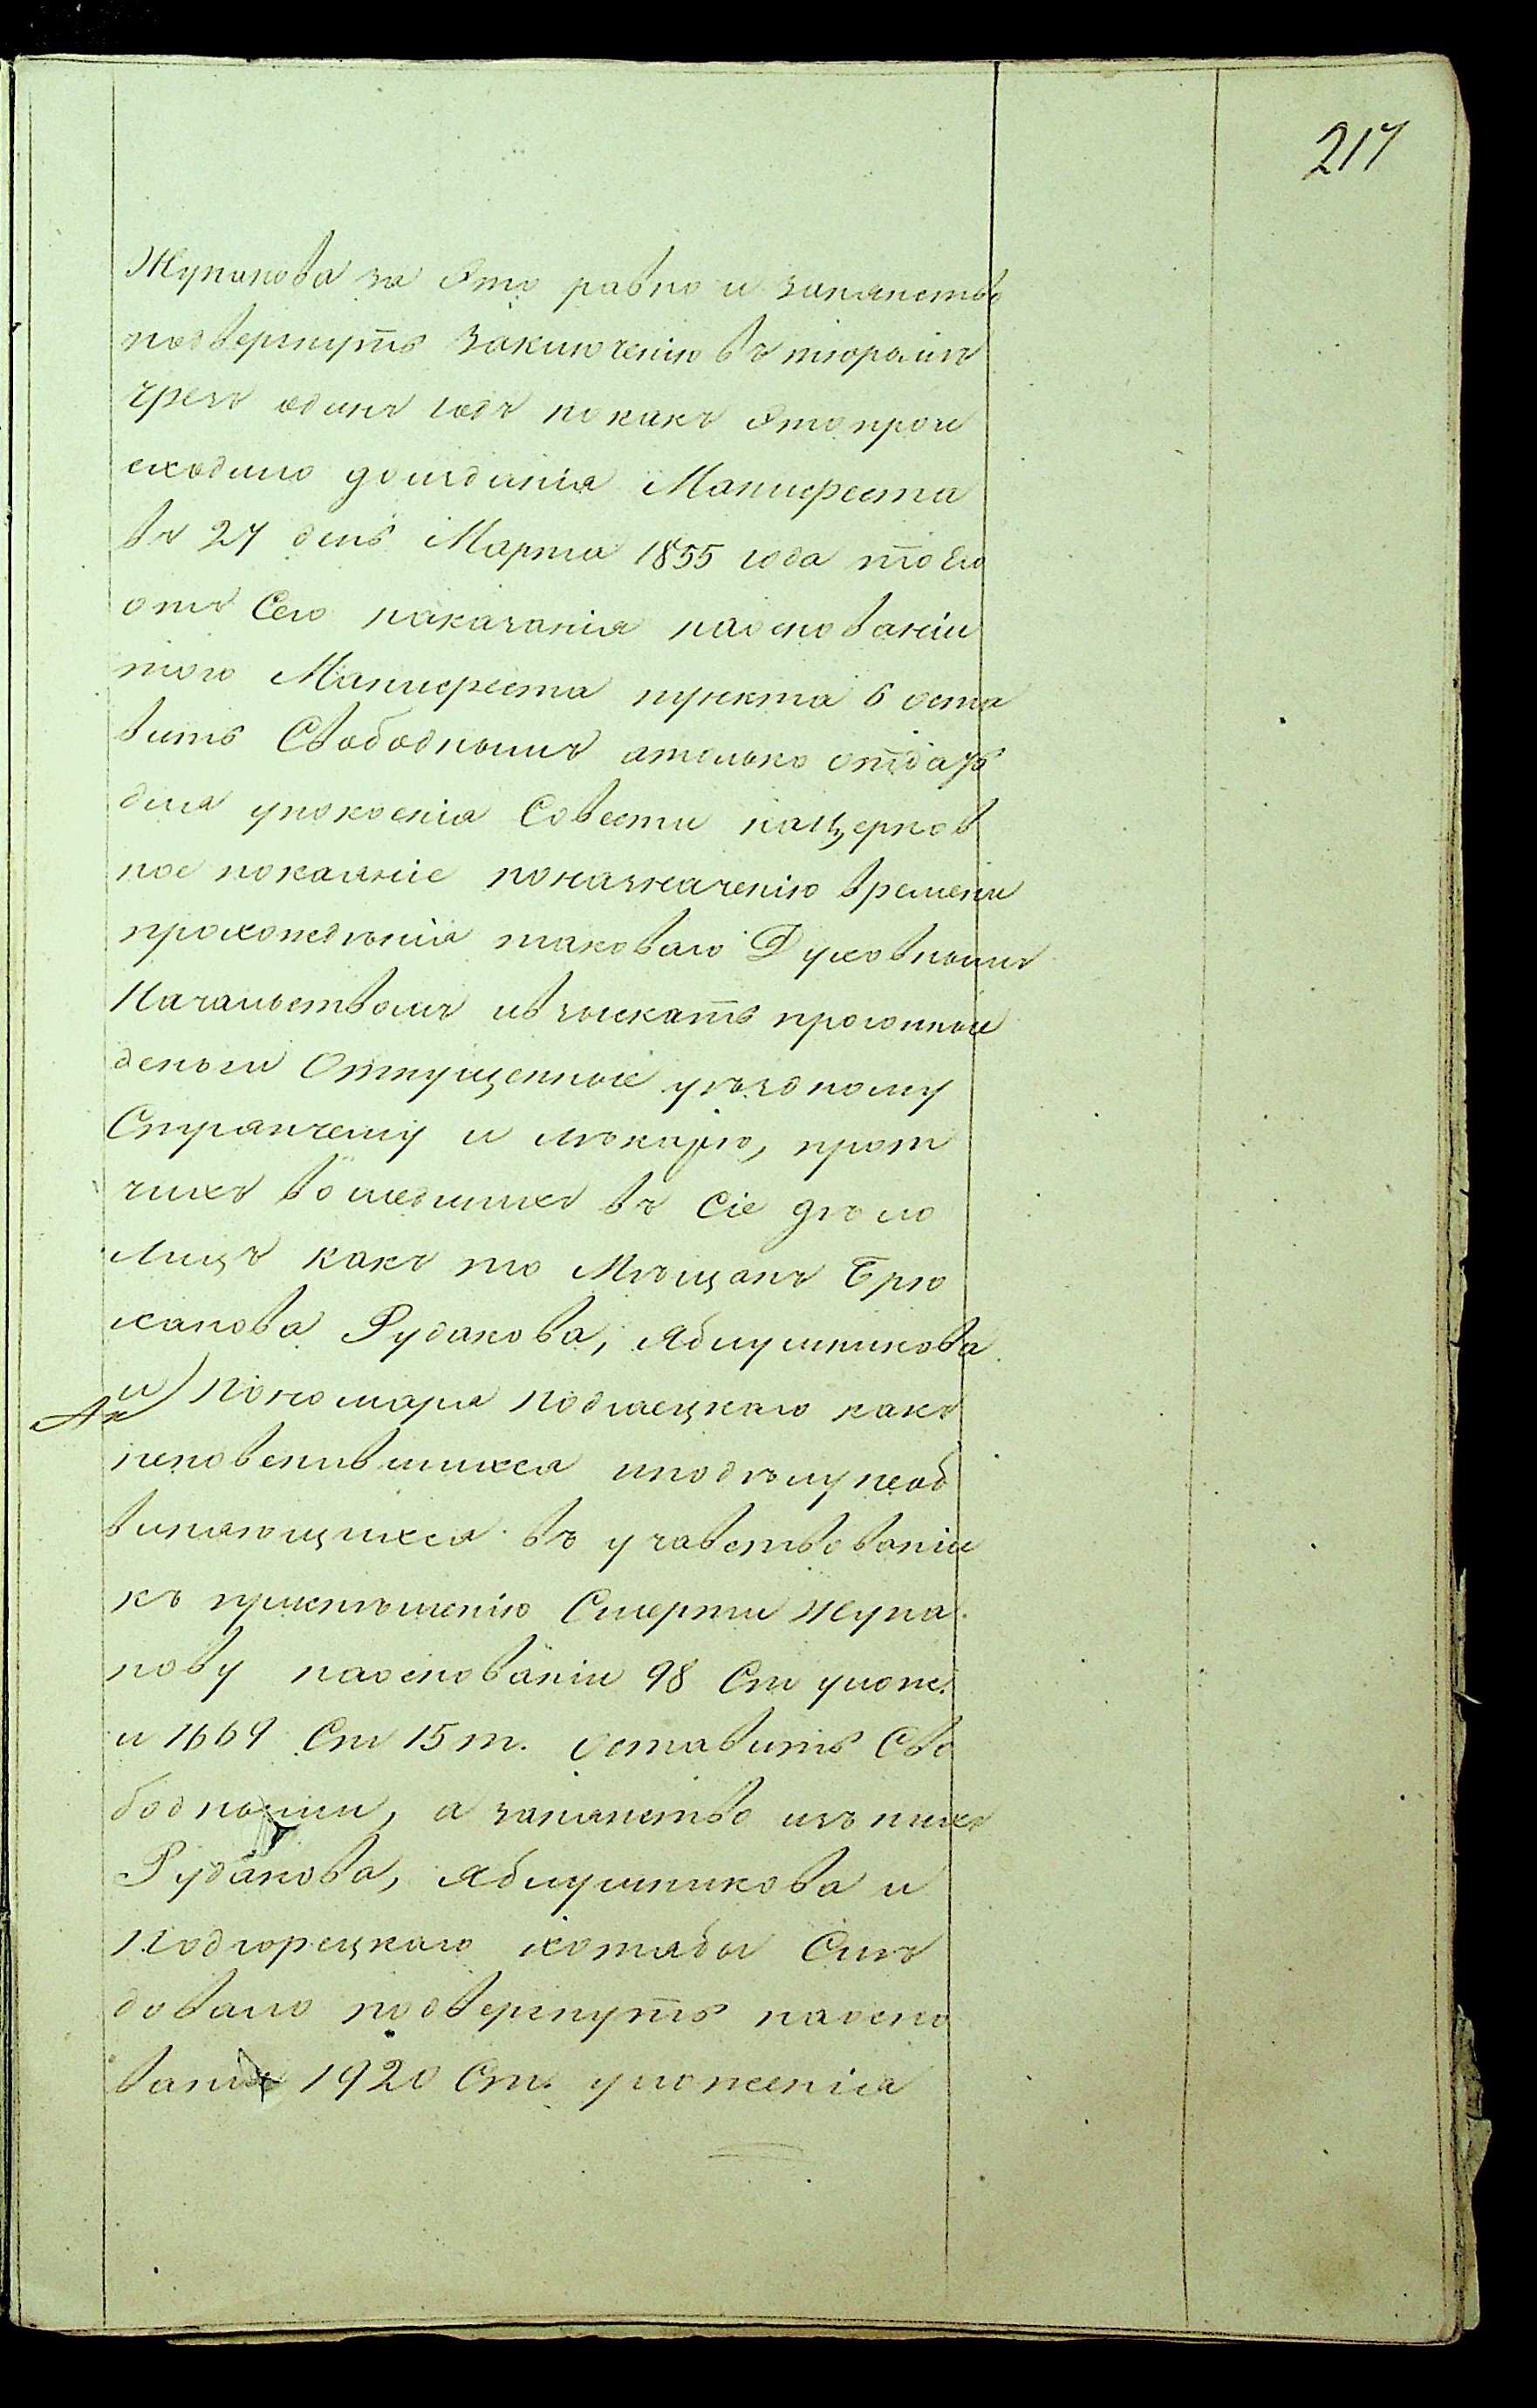 217
Жупанова за Это равно и запянство
подвергнуть Заключенію въ тюрьмъ
чрезъ одинъ годъ но какъ Это прои
сходило доизданія Манифеста
въ 27 день Марта 1855 года то Его
отъ Сего наказанія наоснованіи
того Манифеста пункта 6 оста
вить Свободнымъ атолько отдать
для упокоенія Совести нацерков
ное покаяніе поназначенію времени
прохожденія таковаго Духовнымъ
Начальствомъ ивзыскать прогонныи
деньги Отпущенные уъздному
Стряпчему и лъкарю, прот
чихъ вошедшихъ въ Сіе дъло
лицъ какъ то Мъщанъ Брю
ханова Рудакова, Яблушникова
и) Пономаря Подгаецкаго какъ
неповенившихся иподълу необ
виняющихся въ учавствованіи
къ приключенію Смерти Жупа
нову наоснованіи 98 Ст улож.
и 1669 Ст 15 т. оставить Сво
бодными, а запянство изъ нихъ
Рудакова, Яблушникова и
Подгорецкаго хотябы Слъ
довало подвергнуть наосно
ваніи 1920 Ст. уложенія